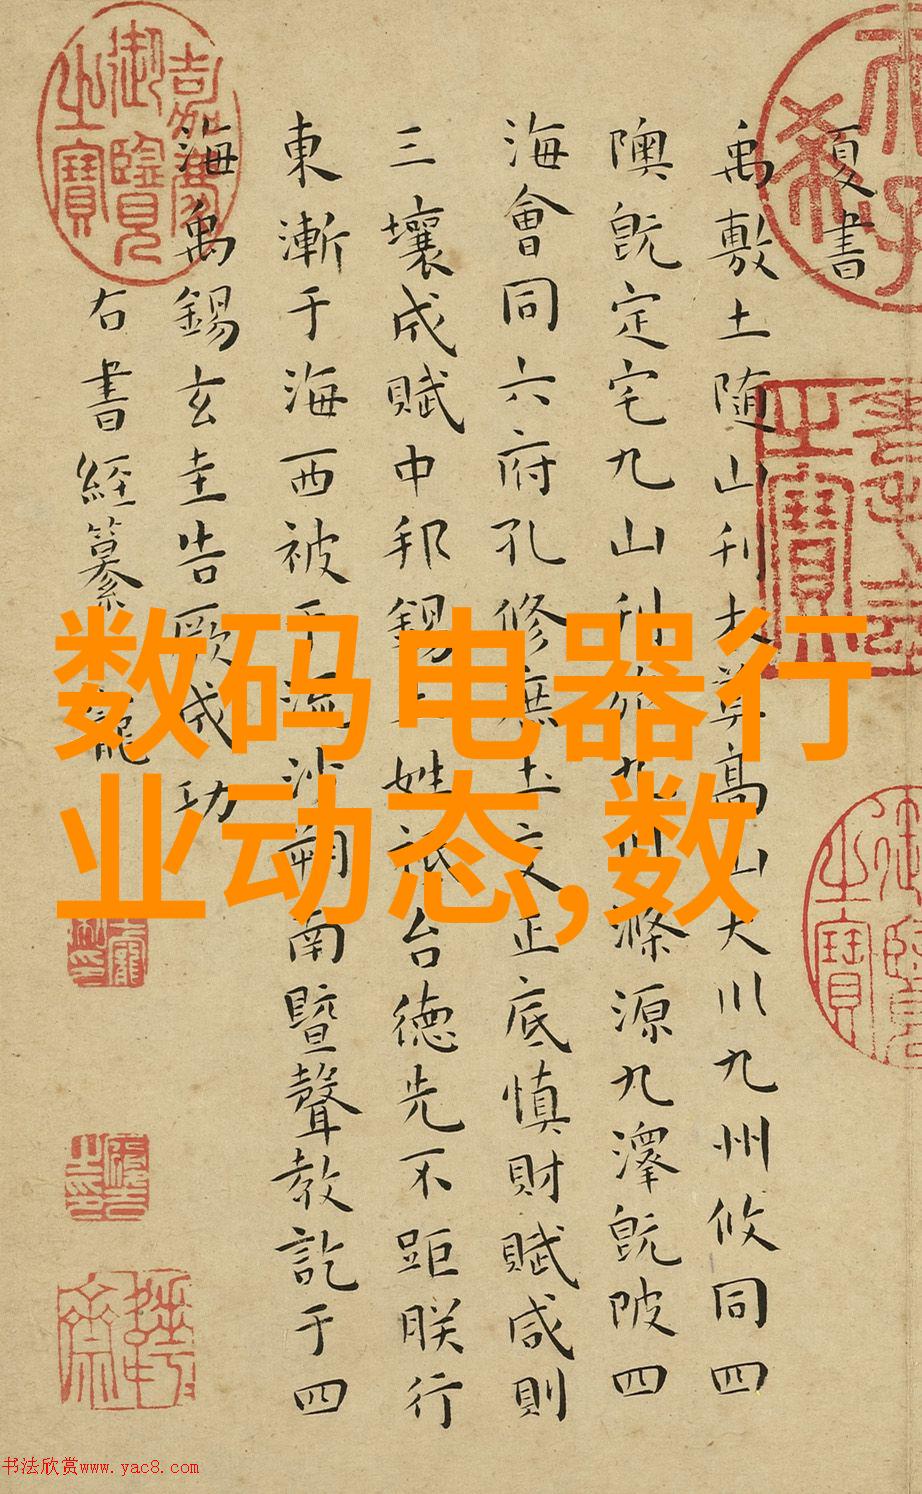 夏書
禹敷土随山刊木奠高山大川九州攸同四
隩旣定宅九山刊旅九川滌源九澤旣陂四
海會同六府孔修庶土交正底慎財賦咸則
三壤成賦中邦錫土姓祗台德先不距朕行
東漸于海西被于流沙朔南曁聲教訖于四
海禹錫玄圭告厥成功
右書經纂 寵
嘉慶御覽之寶
数码电器行
业动态,数
书法欣赏www.yac8.com